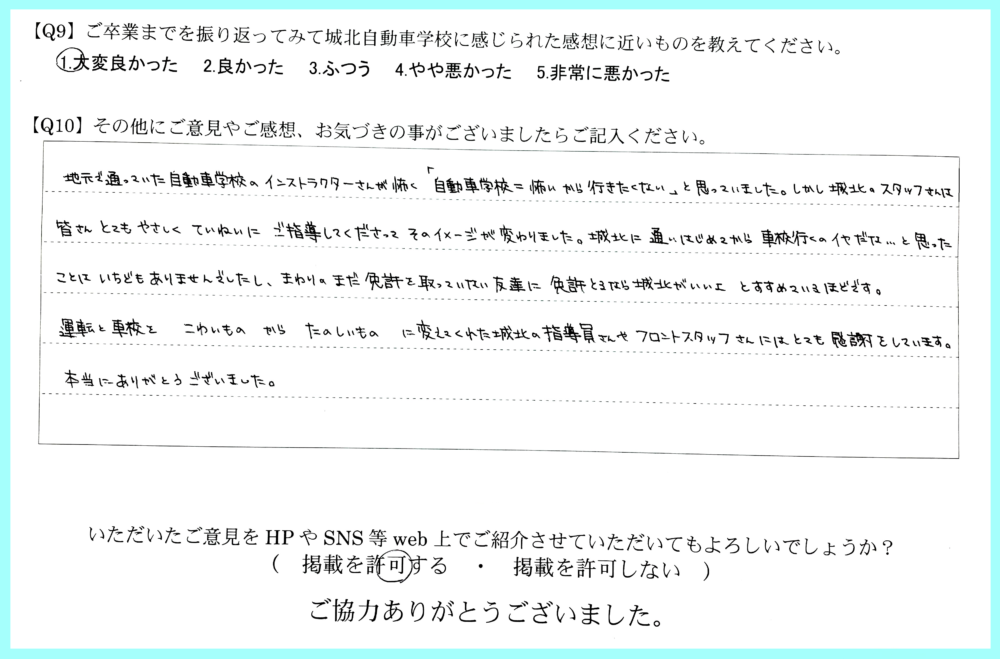 【Q9】ご卒業までを振り返ってみて城北自動車学校に感じられた感想に近いものを教えてください。
1.大変良かった 2.良かった 3.ふつう 4.やや悪かった 5.非常に悪かった
【Q10】その他にご意見やご感想、お気づきの事がございましたらご記入ください。
地元で通っていた自動車学校のインストラクターさんが怖く「自動車学校=怖いから行きたくない」と思っていました。しかし城北のスタッフさんは
皆さんとてもやさしくていねいにご指導してくださってそのイメージが変わりました。城北に通いはじめてから車校行くのイヤだな…と思った
ことはいちどもありませんでしたし、まわりのまだ免許を取っていない友達に免許とるなら城北がいいよとすすめているほどです。
運転と車校を こわいもの から たのしいもの に変えてくれた城北の指導員さんやフロントスタッフさんにはとても感謝をしています。
本当にありがとうございました。
いただいたご意見をHPやSNS等web上でご紹介させていただいてもよろしいでしょうか?
( 掲載を許可する ・ 掲載を許可しない )
ご協力ありがとうございました。